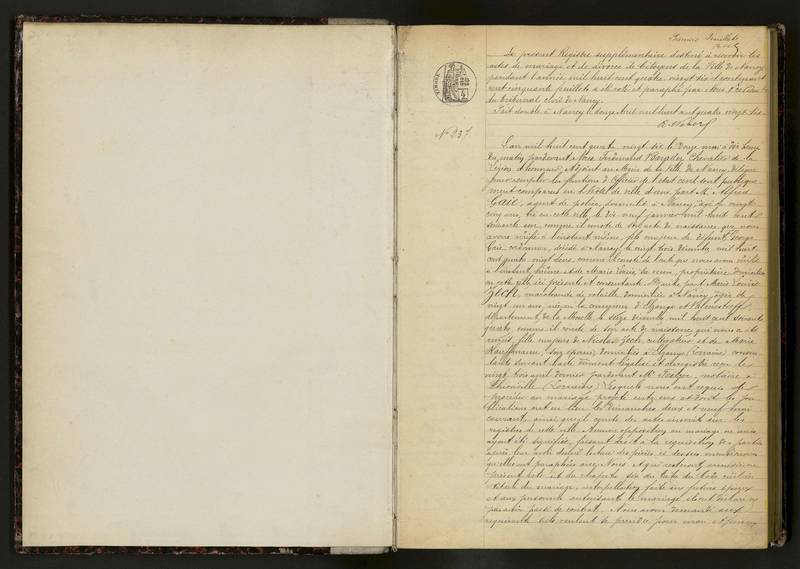 Premier feuillet
Le présent Registre supplémentaire destiné à recevoir les
actes de mariage et de divorce de Citoyens de la Ville de Nancy
pendant l'année mil huit cent quatre vingt six et contenant
cinquante feuillets a été coté et paraphé par Nous
du tribunal civil de Nancy.
Fait double à Nancy le douze Avril mil huit cent quatre vingt six
N° 237
L'an mil huit cent quatre vingt six le douze mai à dix heures
du matin pardevant Nous Ferdinand Chevalier de la
Légion d'honneur, Adjoint au Maire de la Ville de Nancy, délégué
pour remplir les fonctions d'Officier de l'état civil sont publique-
ment comparus en l'hôtel de ville d'une part M. Alfred
agent de police, domicilié à Nancy, âgé de vingt
cinq ans, né en cette ville, le dix neuf janvier mil huit cent
soixante un, comme il conste de son acte de naissance que nous
avons vérifié à l'instant même, fils majeur de défunt George
décédé à Nancy le vingt trois décembre mil huit
cent quatre vingt deux, comme il conste de l'acte que nous avons vérifié
à l'instant même et de Marie Louise sa veuve, propriétaire domiciliée
en cette ville, ici présente et consentante. D'autre part Marie Louise
Zech, marchande de volaille domiciliée à Nancy, âgée de
vingt un ans, née en la commune d'Elzange
département de la Moselle le seize décembre mil huit cent soixante
quatre, comme il conste de son acte de naissance qui nous a été
remis, fille majeure de Nicolas Zech cultivateur et de Marie
Kauffmann, son épouse, domiciliés à Elzange (Lorraine) consen-
tants suivant acte dûment légalisé et enregistré reçu le
vingt trois avril dernier pardevant Me notaire à
Thionville (Lorraine) Lesquels nous ont requis de
procéder au mariage projeté entre eux et dont les pu-
blications ont eu lieu les dimanches deux et neuf mai
courant, ainsi qu'il conste des actes inscrits sur les
registres de cette ville. Aucune opposition au mariage ne nous
ayant été signifiée, faisant droit à la réquisition des parties
après leur avoir donné lecture des pièces ci dessus mentionnées
qu'elles ont paraphées avec Nous et qui resteront annexées au
présent acte et du chapitre six du titre du Code civil
du mariage, interpellation faite aux futurs époux
et aux personnes autorisant le mariage
pas avoir passé de contrat. Nous avons demandé aux
requérants s'ils veulent se prendre pour mari et femme